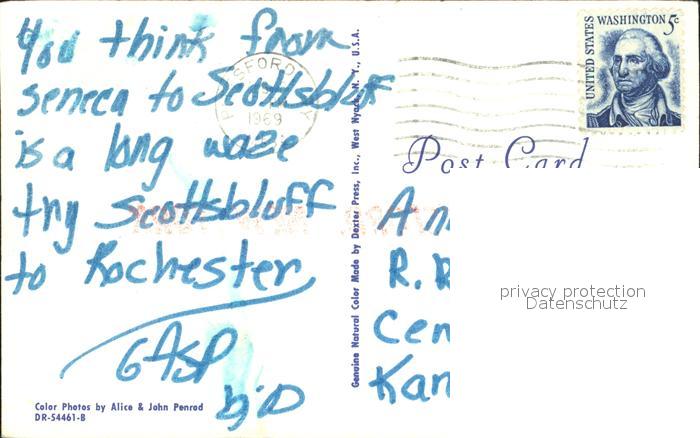 You think from
seneca to Scottsbluff
is a long waze
try Scottsbluff
to Rochester
GASP
Color Photos by Alice & John Penrod
DR-54461-B
Genuine Natural Color Made by Dexter Press, Inc., West Nyack, N. Y., U.S.A.
SFORD
1969
UNITED STATES
WASHINGTON 5c
Post Card
An
R. R
Cen
Kan
privacy protection
Datenschutz